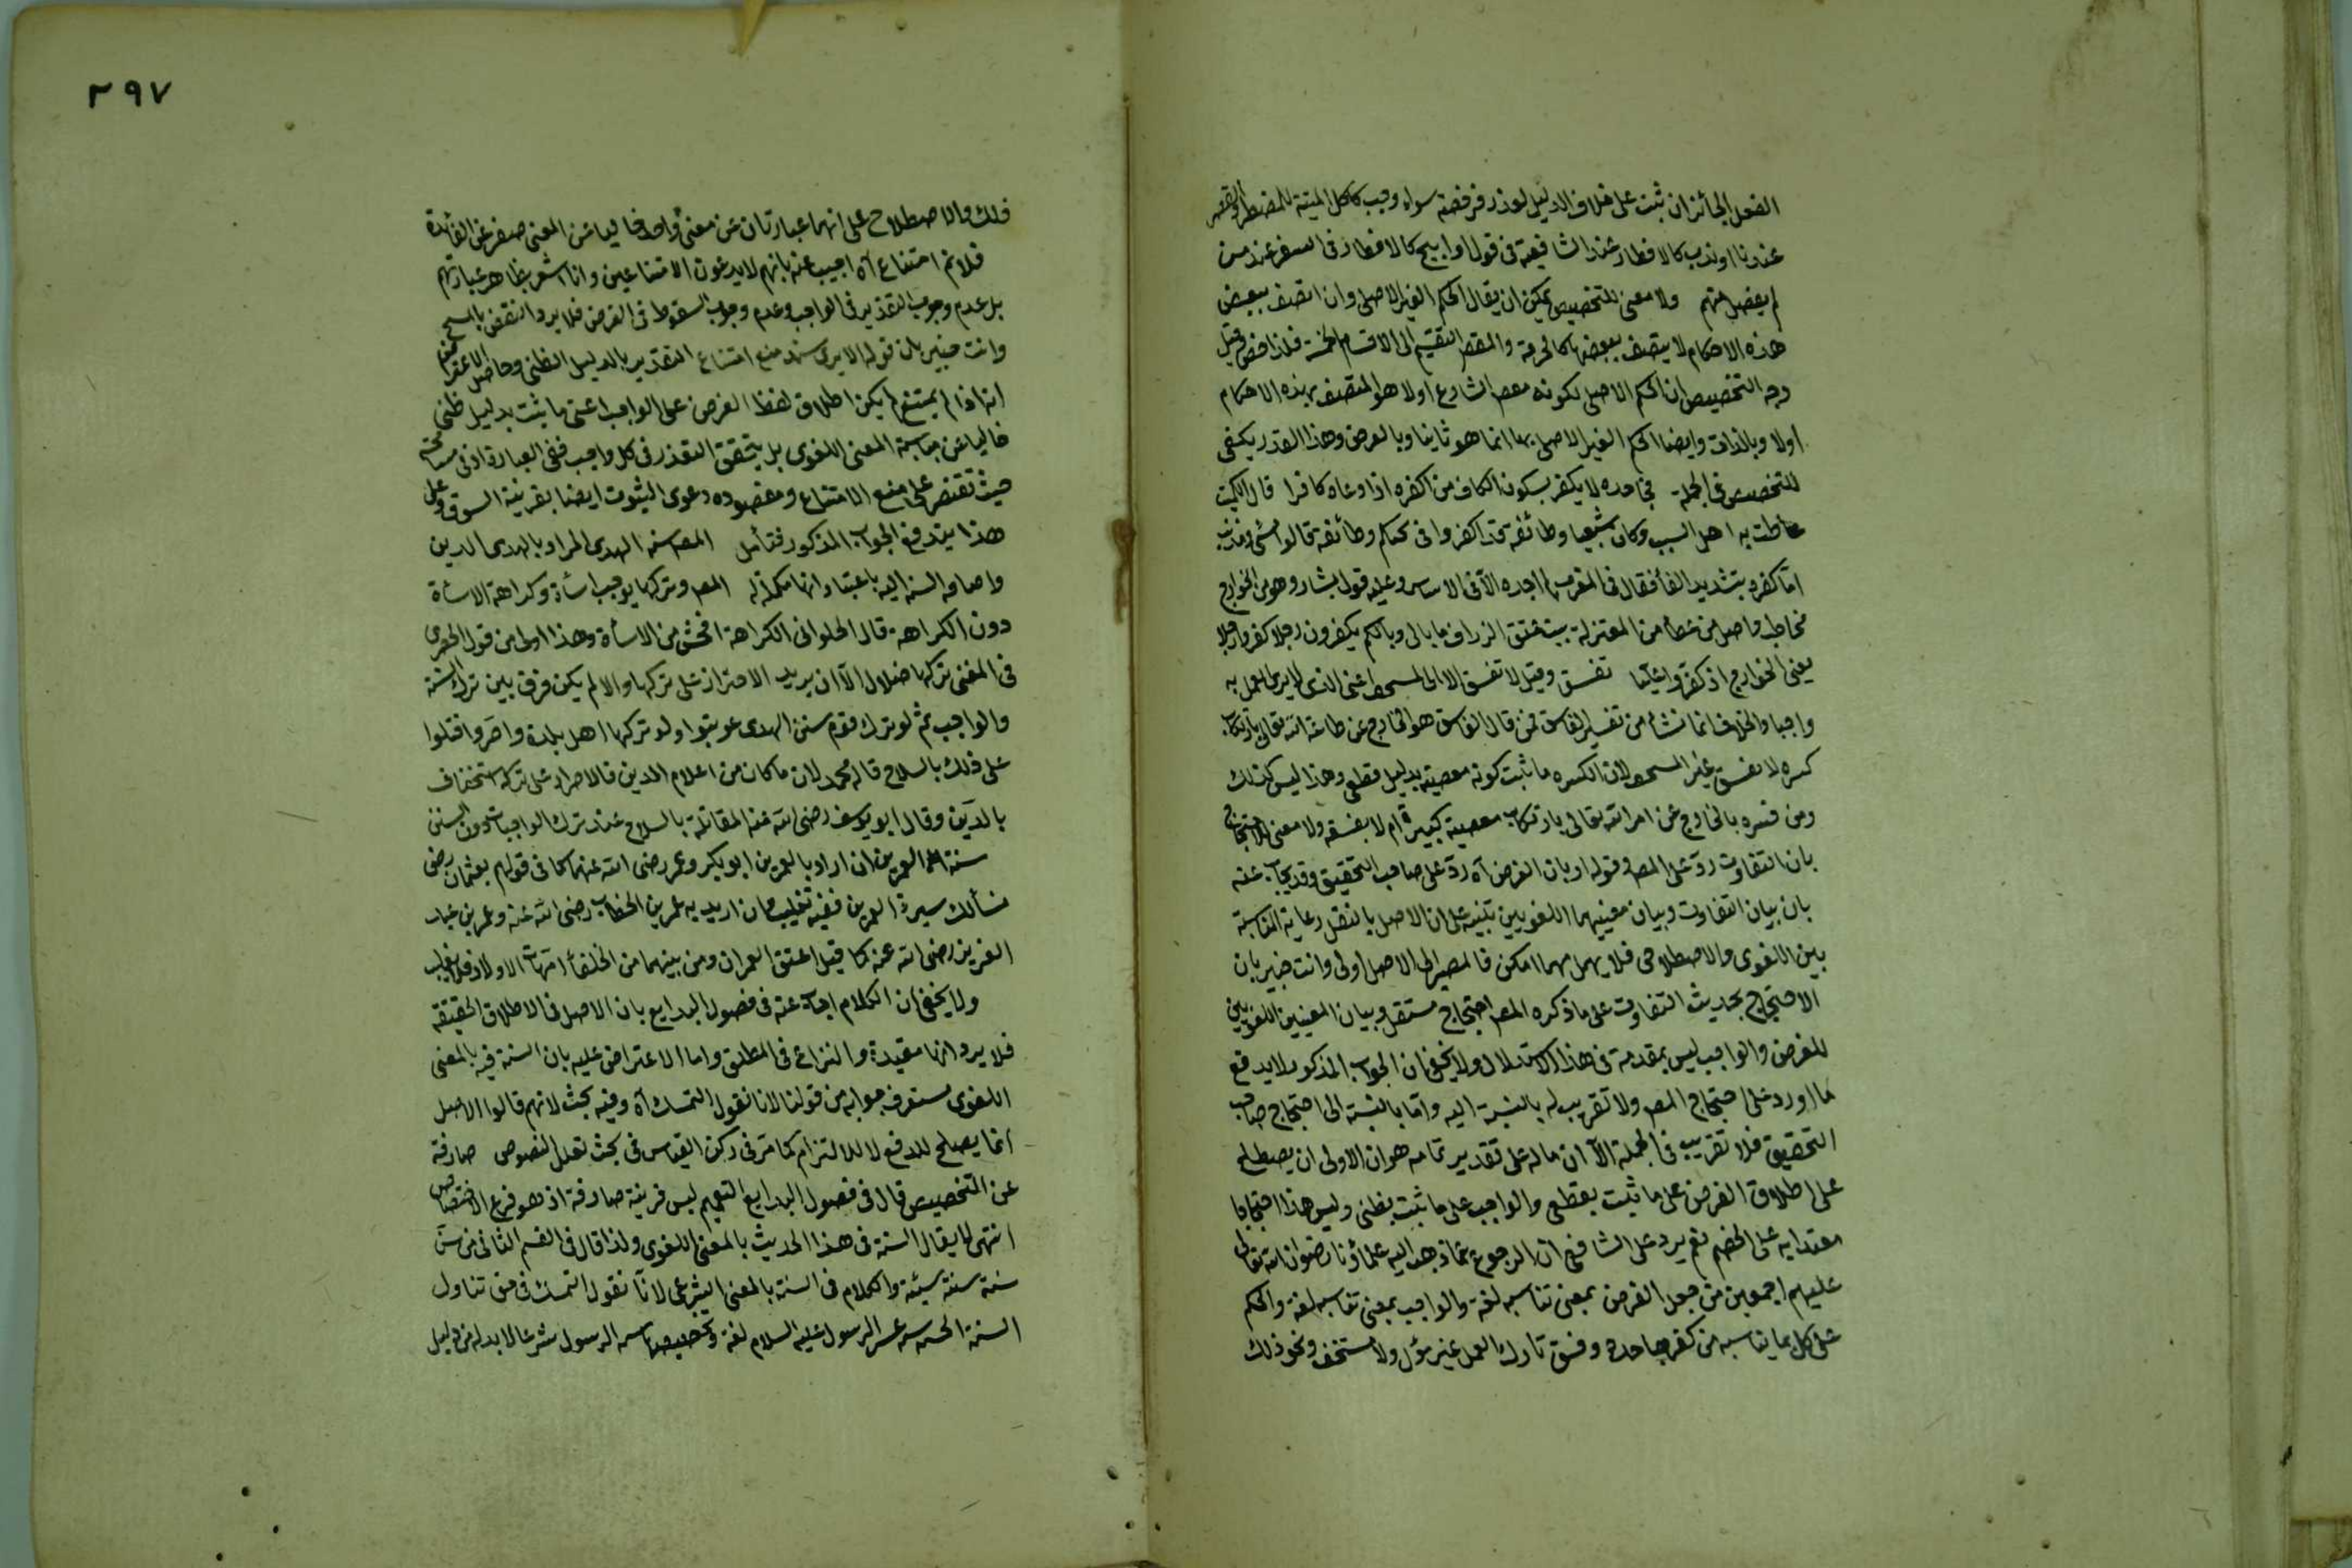 الفعل الجائز ان ثبت على خلاف الدليل لعذر فرخصة سواء وجب كاكل الميتة للمضطر والقصر
عندنا او ندب كالافطار عند الشافعية في قول او ابيح كالافطار في السفر عند من
لم يفضل منهم ولا معنى للتخصيص يمكن ان يقال الحكم الغير الاصلى وان اتصف ببعض
هذه الاحكام لا يتصف ببعضها كالحرمة والمقصر التقسيم الى الاقسام الخمسة فلذا خص وقيل
وجه التخصيص ان الحكم الاصلى لكونه مقصر الشارع اولا هو المتصف بهذه الاحكام
اولا وبالذات وايضا الحكم الغير الاصلى بها انما هو ثانيا وبالعرض وهذا القدر يكفى
للتخصيص في الجملة جاحده لا يكفر بسكون الكاف من اكفره اذا دعاه كافرا قال الكميت
وطائفة قد اكفروا في بحبكم وطائفة قالوا مسئ ومذنب
اما كفره بتشديد الفاء فقال في المغرب لم اجده الا في الاساس وعليه قول بشار وهو من الخوارج
مخاطب واصل من عطاء من المعتزلة عنق الزراف ما بالى وبالكم يكفرون رجلا كفروا رجلا
يعنى الخوارج اذ كفروا عليا تفسق وقيل لا تفسق الا المستحف اعنى الذى لا يرى العمل به
واجبا والخلاف انما نشاء من تفسير الفاسق فمن قال الفاسق هو الخارج عن طاعة الله تعالى بارتكاب
كبيرة لا يفسق غير المستحف لان الكبيرة ما ثبت كونه معصية بدليل قطعى وهذا ليس كذلك
ومن فسره بالخارج عن امر الله تعالى بارتكاب معصية كبيرة ام لا يفسقه ولا معنى للاحتجاج
بان التفاوت رد على المصر وقوله او بان الفرض اه رد على صاحب التحقيق وقد يجاب عنه
بان بيان التفاوت وبيان معنييهما اللغويين تنبيه على ان الاصل بالنقل رعاية المناسبة
بين اللغوى والاصطلاحى فلا يهمل مهما امكن فالمصير الى الاصل اولى وانت خبير بان
الاحتجاج بحديث التفاوت على ما ذكره المصر احتجاج مستقل وبيان المعنيين اللغويين
للفرض والواجب ليس بمقدمة في هذا الاستدلال ولا يخفى ان الجواب المذكور لا يدفع
ما اورد على احتجاج المصر ولا تقريب له بالنسبة اليه واما بالنسبة الى احتجاج صاحب
التحقيق فلا تقريب في الجملة الا ان ماله على تقدير تمامه هو ان الاولى ان يصطلح
على اطلاق الفرض على ما ثبت بقطعى والواجب على ما ثبت بظنى وليس هذا احتجاجا
معتدا به على الخصم نعم يرد على الشافعى ان الرجوع عما ذهب اليه علماؤنا رضوان الله تعالى
عليهم اجمعين من جعل الفرض بمعنى تناسبه لغة والواجب بمعنى تناسبه لغة والحكم
على كل بما يناسبه من كفر جاحده وفسق تارك العمل غير مؤل ولا مستخف ونحو ذلك
٢٩٧
ذلك والاصطلاح على انهما عبارتان عن معنى واحد خاليا عن المعنى صفر عن الفائدة
فلا ثم امتناع اه اجيب عنه بانهم لا يدعون الامتناعين وانا اشعر بظاهر عبارتهم
بل عدم وجوب التقدير في الواجب وعدم وجوب السقوط في الفرض فلا يرد النقض بالمسح
وانت خبير بان قوله الا يرى سند منع امتناع التقدير بالدليل الظنى وحاصل الاعتراض
انه اذا لم يمتنع لم يكن اطلاق لفظ الفرض على الواجب اعنى ما ثبت بدليل ظنى
خاليا عن مناسبة المعنى اللغوى بل يتحقق التقدير في كل واجب ففي العبارة ادنى مسامحة
حيث تقتصر على منع الامتناع ومقصوده دعوى الثبوت ايضا بقرينة السوق وعلى
هذا يندفع الجواب المذكور فتأمل المصر سنة الهدى المراد بالهدى الدين
واضافه السنة اليه باعتبار انها مكملة له المصر وتركها يوجب اساءة وكراهة الاساءة
دون الكراهة قال الحلوانى الكراهة افحش من الاساءة وهذا اولى من قول
في المغنى تركها ضلال الا ان يريد الاحتراز على تركها والا لم يكن فرق بين ترك السنة
والواجب ثم لو ترك قوم سنن الهدى عوتبوا ولو تركها اهل بلدة واصروا قتلوا
على ذلك بالسلاح قاله محمد لان ما كان من اعلام الدين فالاصرار على تركه استخفاف
بالدين وقال ابو يوسف رضى الله عنه المقاتلة بالسلاح عند ترك الواجبات دون السنن
سنة العمرين ان اراد بالعمرين ابو بكر وعمر رضى الله عنهما كما في قولهم بعثمان رضى
نسألك سيرة العمرين ففيه تغليب وان اريد به عمر بن الخطاب رضى الله عنه وعمر بن عبد
العزيز رضى الله عنه كما قيل اعتق العمران ومن بينهما من الخلفاء امهات الاولاد فلا تغليب
ولا يخفى ان الكلام اجاب عنه في فصول البدايع بان الاصل في الاطلاق الحقيقة
فلا يرد انها مقيدة والنزاع في المطلق واما الاعتراض عليه بان السنة فيه بالمعنى
اللغوى ستعرف جوابه من قولنا لانا نقول التمسك اه وفيه بحث لانهم قالوا الاصل
انما يصلح للدفع لا للالتزام كما مر في ركن القياس في بحث تعلل النصوص صارفة
عن التخصيص قال في فصول البدايع التعميم ليس قرينة صارفة اذ هو فرع الاختصاص
انتهى لا يقال السنة في هذا الحديث بالمعنى اللغوى ولذا قال في القسم الثانى من سن
سنة سنة سيئة والكلام في السنة بالمعنى الشرعى لانا نقول التمسك في من تناول
السنة الرسول عليه السلام لغة وتخصيصها الرسول شرعا لا بد له من دليل